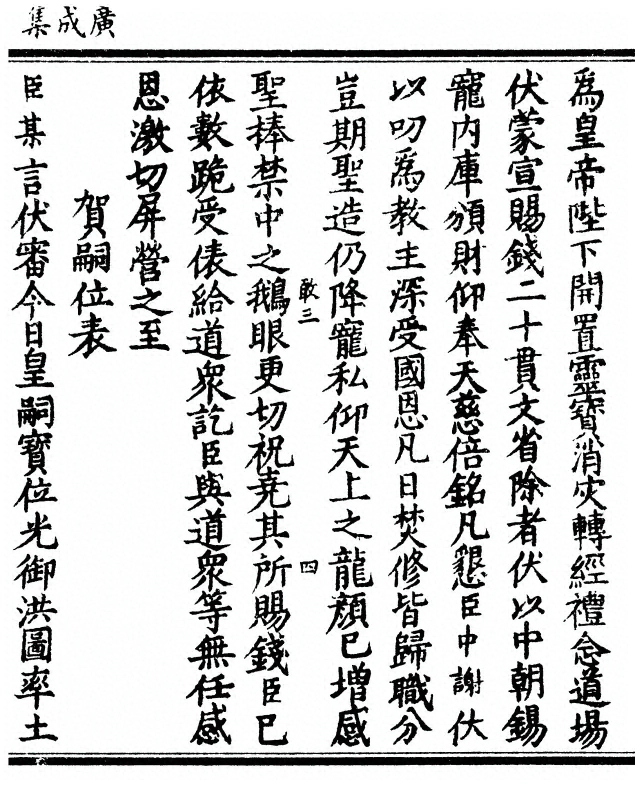 廣成集
爲皇帝陛下開置靈寶消灾轉經禮念道場
伏蒙宣賜錢二十貫文省除者伏以中朝錫
寵内庫頒財仰奉天慈倍銘凡懇臣中謝伏
以叨爲教主深受國恩凡日焚修皆歸職分
豈期聖造仍降寵私仰天上之龍顏已增感
敢三
四
聖捧禁中之鵝眼更切祝堯其所賜錢臣已
依數跪受俵給道衆訖臣與道衆等無任感
恩激切屏營之至
賀嗣位表
臣某言伏審今日皇嗣寶位光御洪圖率土